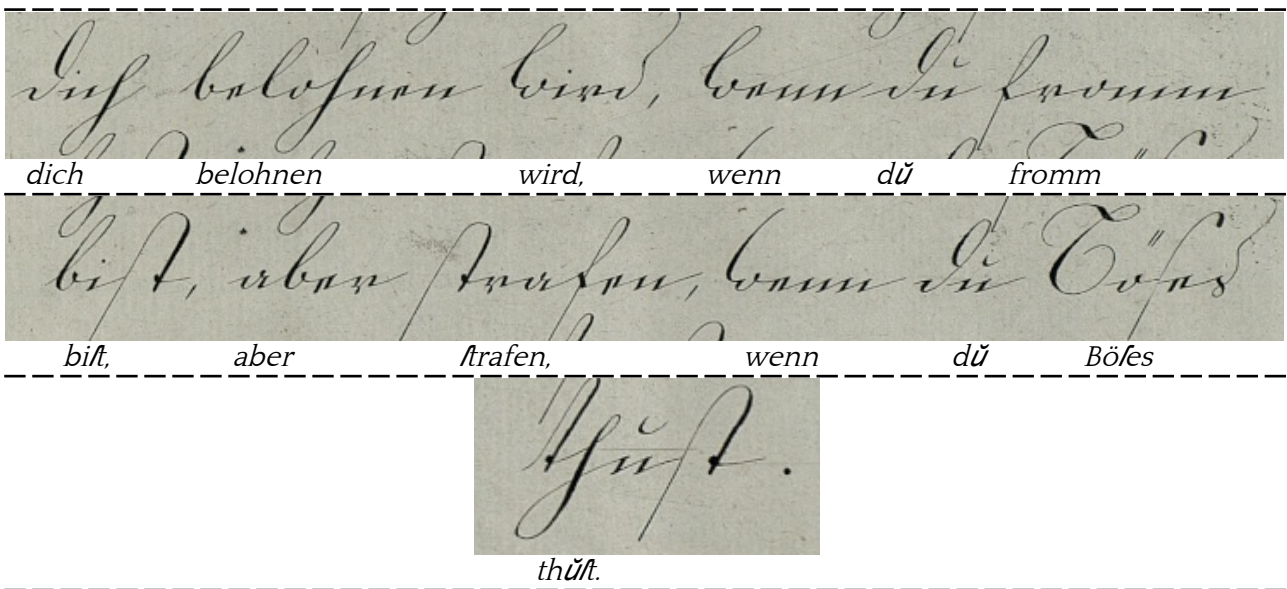 dich belohnen wird, wenn dŭ fromm
dich belohnen wird, wenn dŭ fromm
biſt, aber ſtrafen, wenn dŭ Böſes
biſt, aber ſtrafen, wenn dŭ Böſes
thŭſt.
thŭſt.